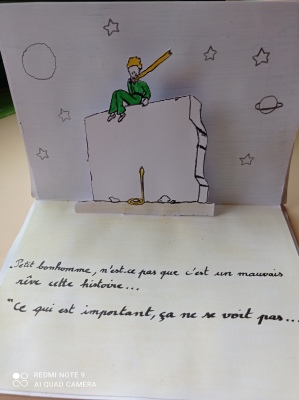 Petit bonhomme, n'est-ce pas que c'est un mauvais
rêve cette histoire...
"Ce qui est important, ça ne se voit pas...
REDMI NOTE 9
AI QUAD CAMERA